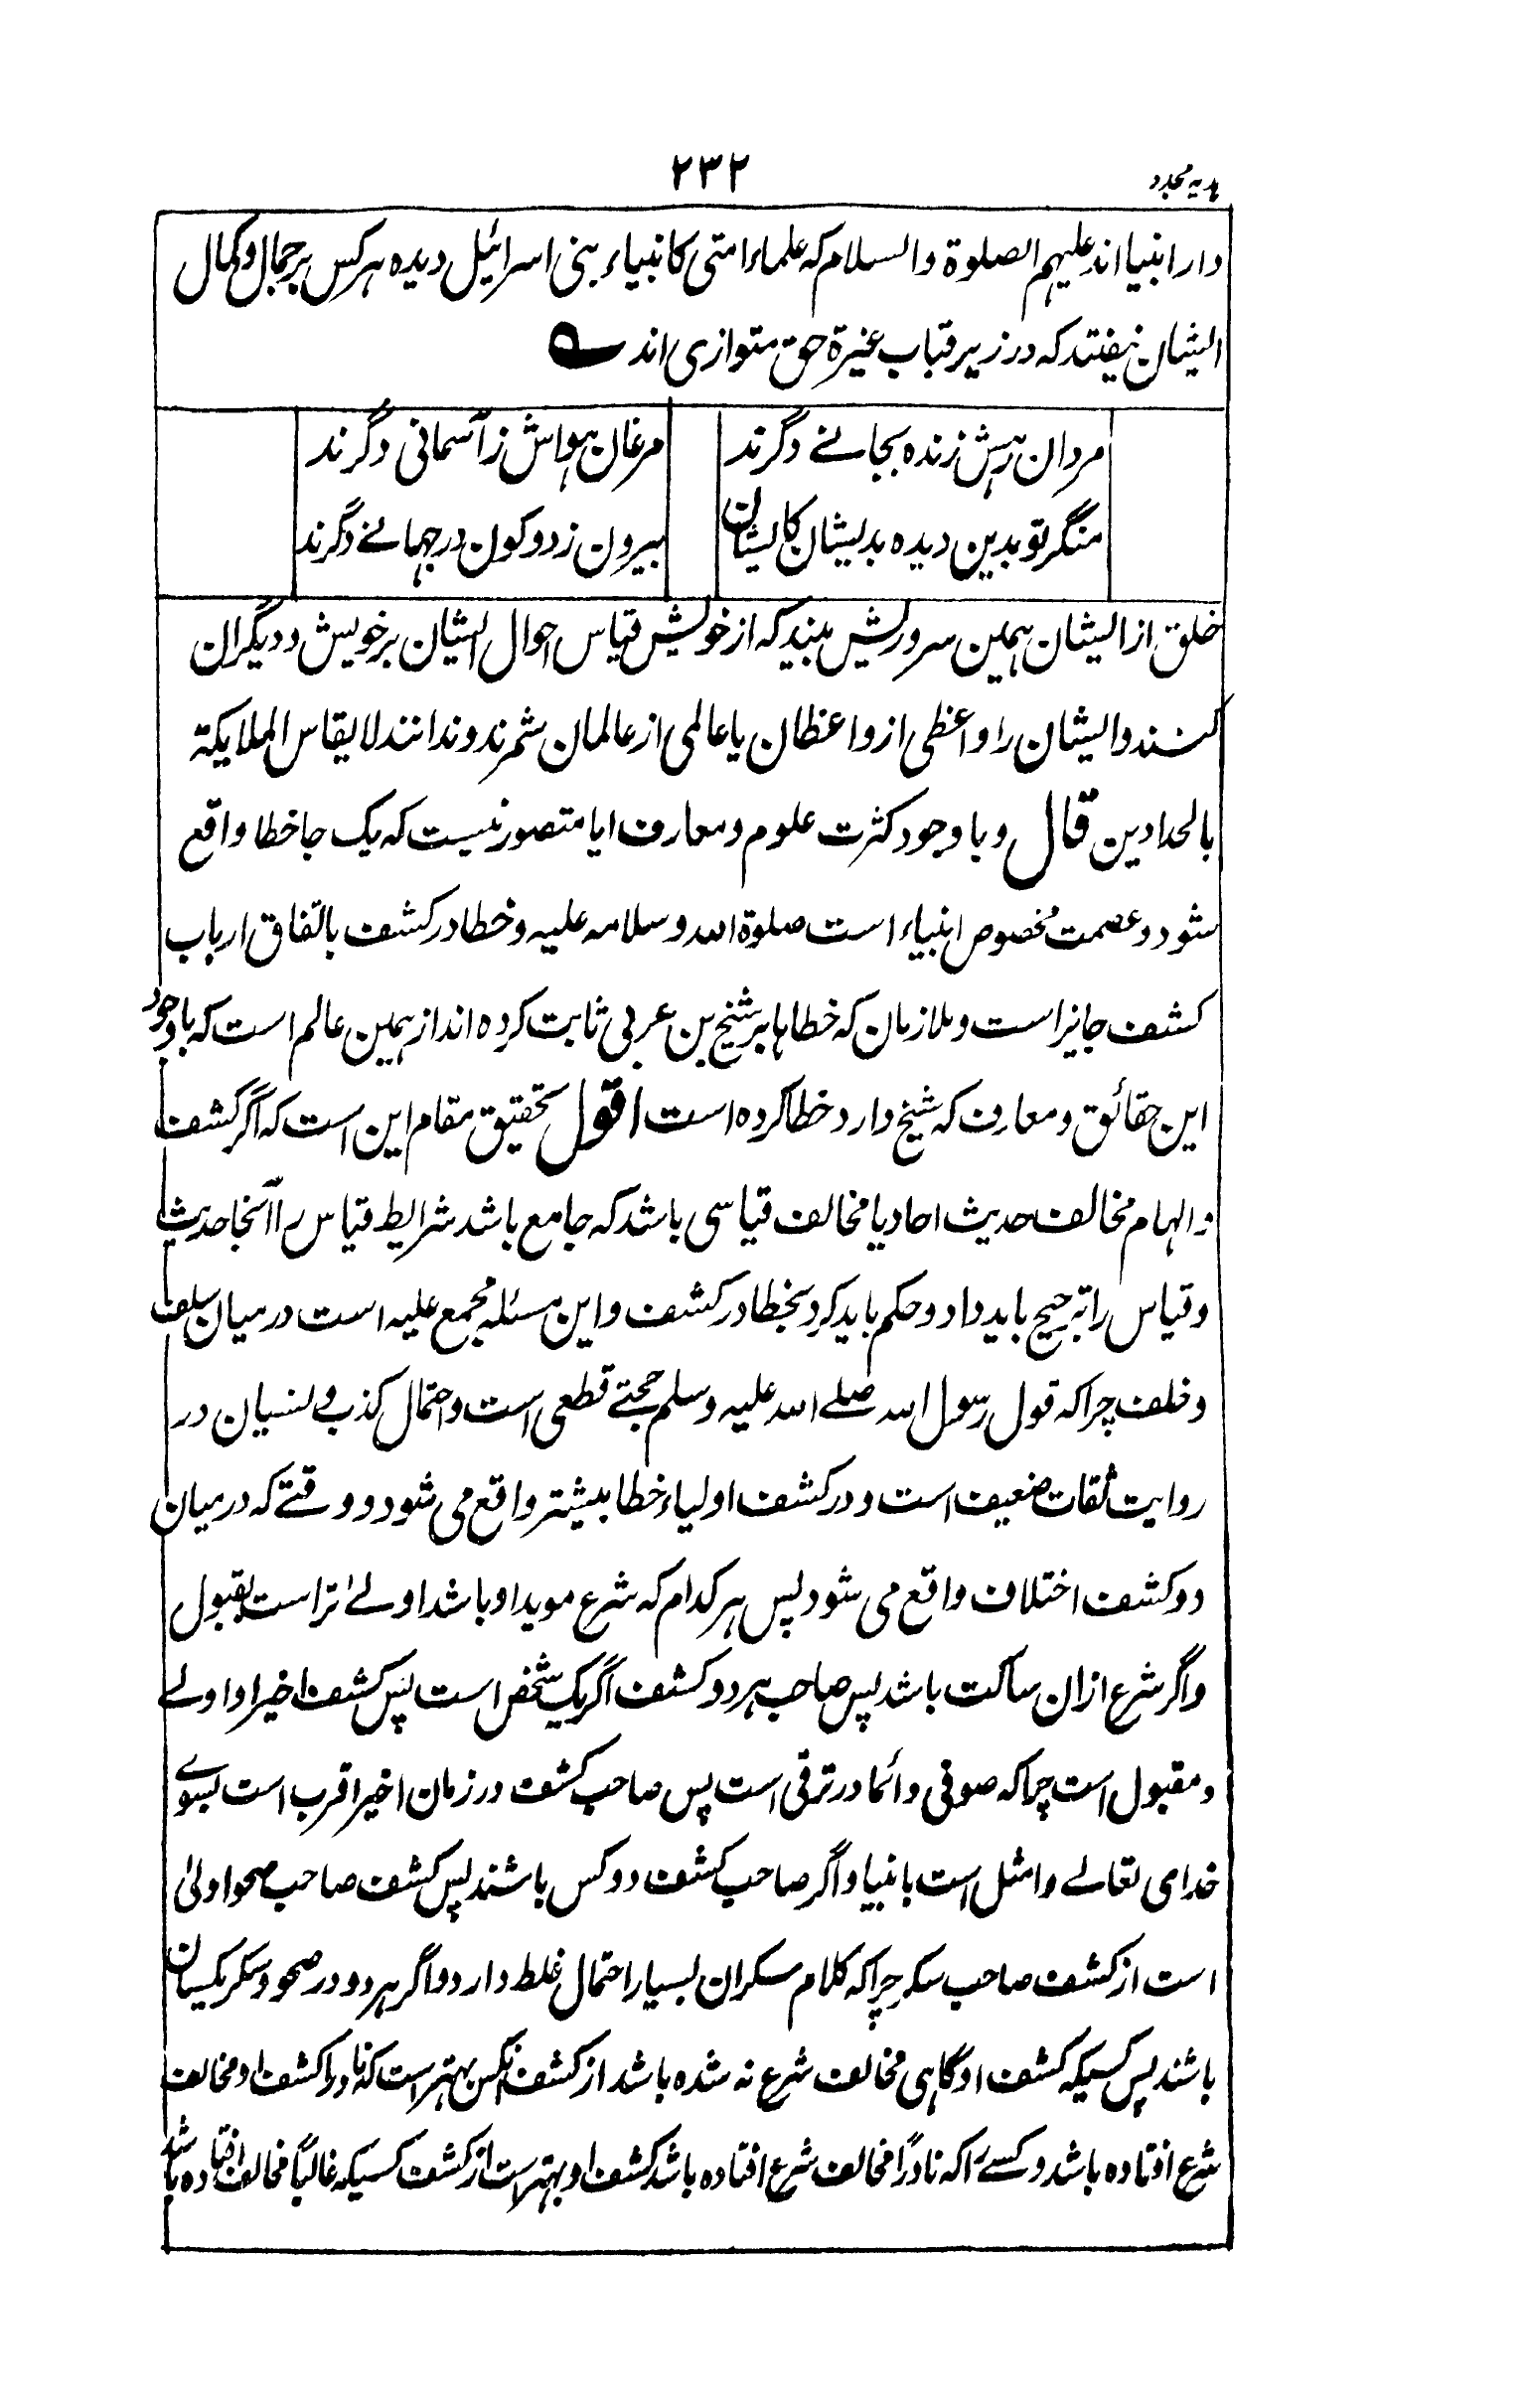 ہدیہ مجدد
۲۳۲
دار انبیا اند علیہم الصلوة والسلام کہ علماء امتی کانبیاء بنی اسرائیل دیدہ ہر کس بر جمال و کمال
ایشان نیفتد کہ در زیر قباب غیرة حق متوازی اند ے
مردان رہش زندہ بجانے دگرند
مرغان ہواش ز آسمانی دگرند
منگر تو بدین دیدہ بدیشان کایشان
بیرون ز دو کون در جہانے دگرند
خلق از ایشان ہمین سرو ریش بیند کہ از خویش قیاس احوال ایشان بر خویش و دیگران
کنند و ایشان را واعظی از واعظان یا عالمی از عالمان شمرند و ندانند لا یقاس الملایکة
بالحدادین قال و با وجود کثرت علوم و معارف ایا متصور نیست کہ یک جا خطا واقع
شود و عصمت مخصوص انبیاء است صلوة اللہ و سلامہ علیہ و خطا در کشف باتفاق ارباب
کشف جایز است و ملازمان کہ خطاہا بر شیخ بن عربی ثابت کردہ اند از ہمین عالم است کہ باوجود
این حقائق و معارف کہ شیخ دارد خطا کردہ است اقول تحقیق مقام این است کہ اگر کشف
و الہام مخالف حدیث احاد یا مخالف قیاسی باشد کہ جامع باشد شرایط قیاس را آنجا حدیث
و قیاس را ترجیح باید داد و حکم باید کرد بخطا در کشف و این مسئلہ مجمع علیہ است در میان سلف
و خلف چرا کہ قول رسول اللہ صلے اللہ علیہ وسلم حجتے قطعی است و احتمال کذب و نسیان در
روایت ثقات ضعیف است و در کشف اولیاء خطا بیشتر واقع می شود و وقتے کہ در میان
دو کشف اختلاف واقع می شود پس ہر کدام کہ شرع موید او باشد اولے تر است بقبول
و اگر شرع ازان ساکت باشد پس صاحب ہر دو کشف اگر یک شخص است پس کشف اخیر او اولے
و مقبول است چرا کہ صوفی دائما در ترقی است پس صاحب کشف در زمان اخیر اقرب است بسوے
خدای تعالے و امثل است بانبیا و اگر صاحب کشف دو کس باشند پس کشف صاحب صحو اولیٰ
است از کشف صاحب سکر چرا کہ کلام سکران بسیار احتمال غلط دارد و اگر ہر دو در صحو و سکر یکسان
باشند پس کسیکہ کشف او گاہی مخالف شرع نہ شدہ باشد از کشف آنکس بہتر است کہ نادرا کشف او مخالف
شرع افتادہ باشد و کسے را کہ نادرًا مخالف شرع افتادہ باشد کشف او بہتر است از کشف کسیکہ غالبًا مخالف افتادہ باشد